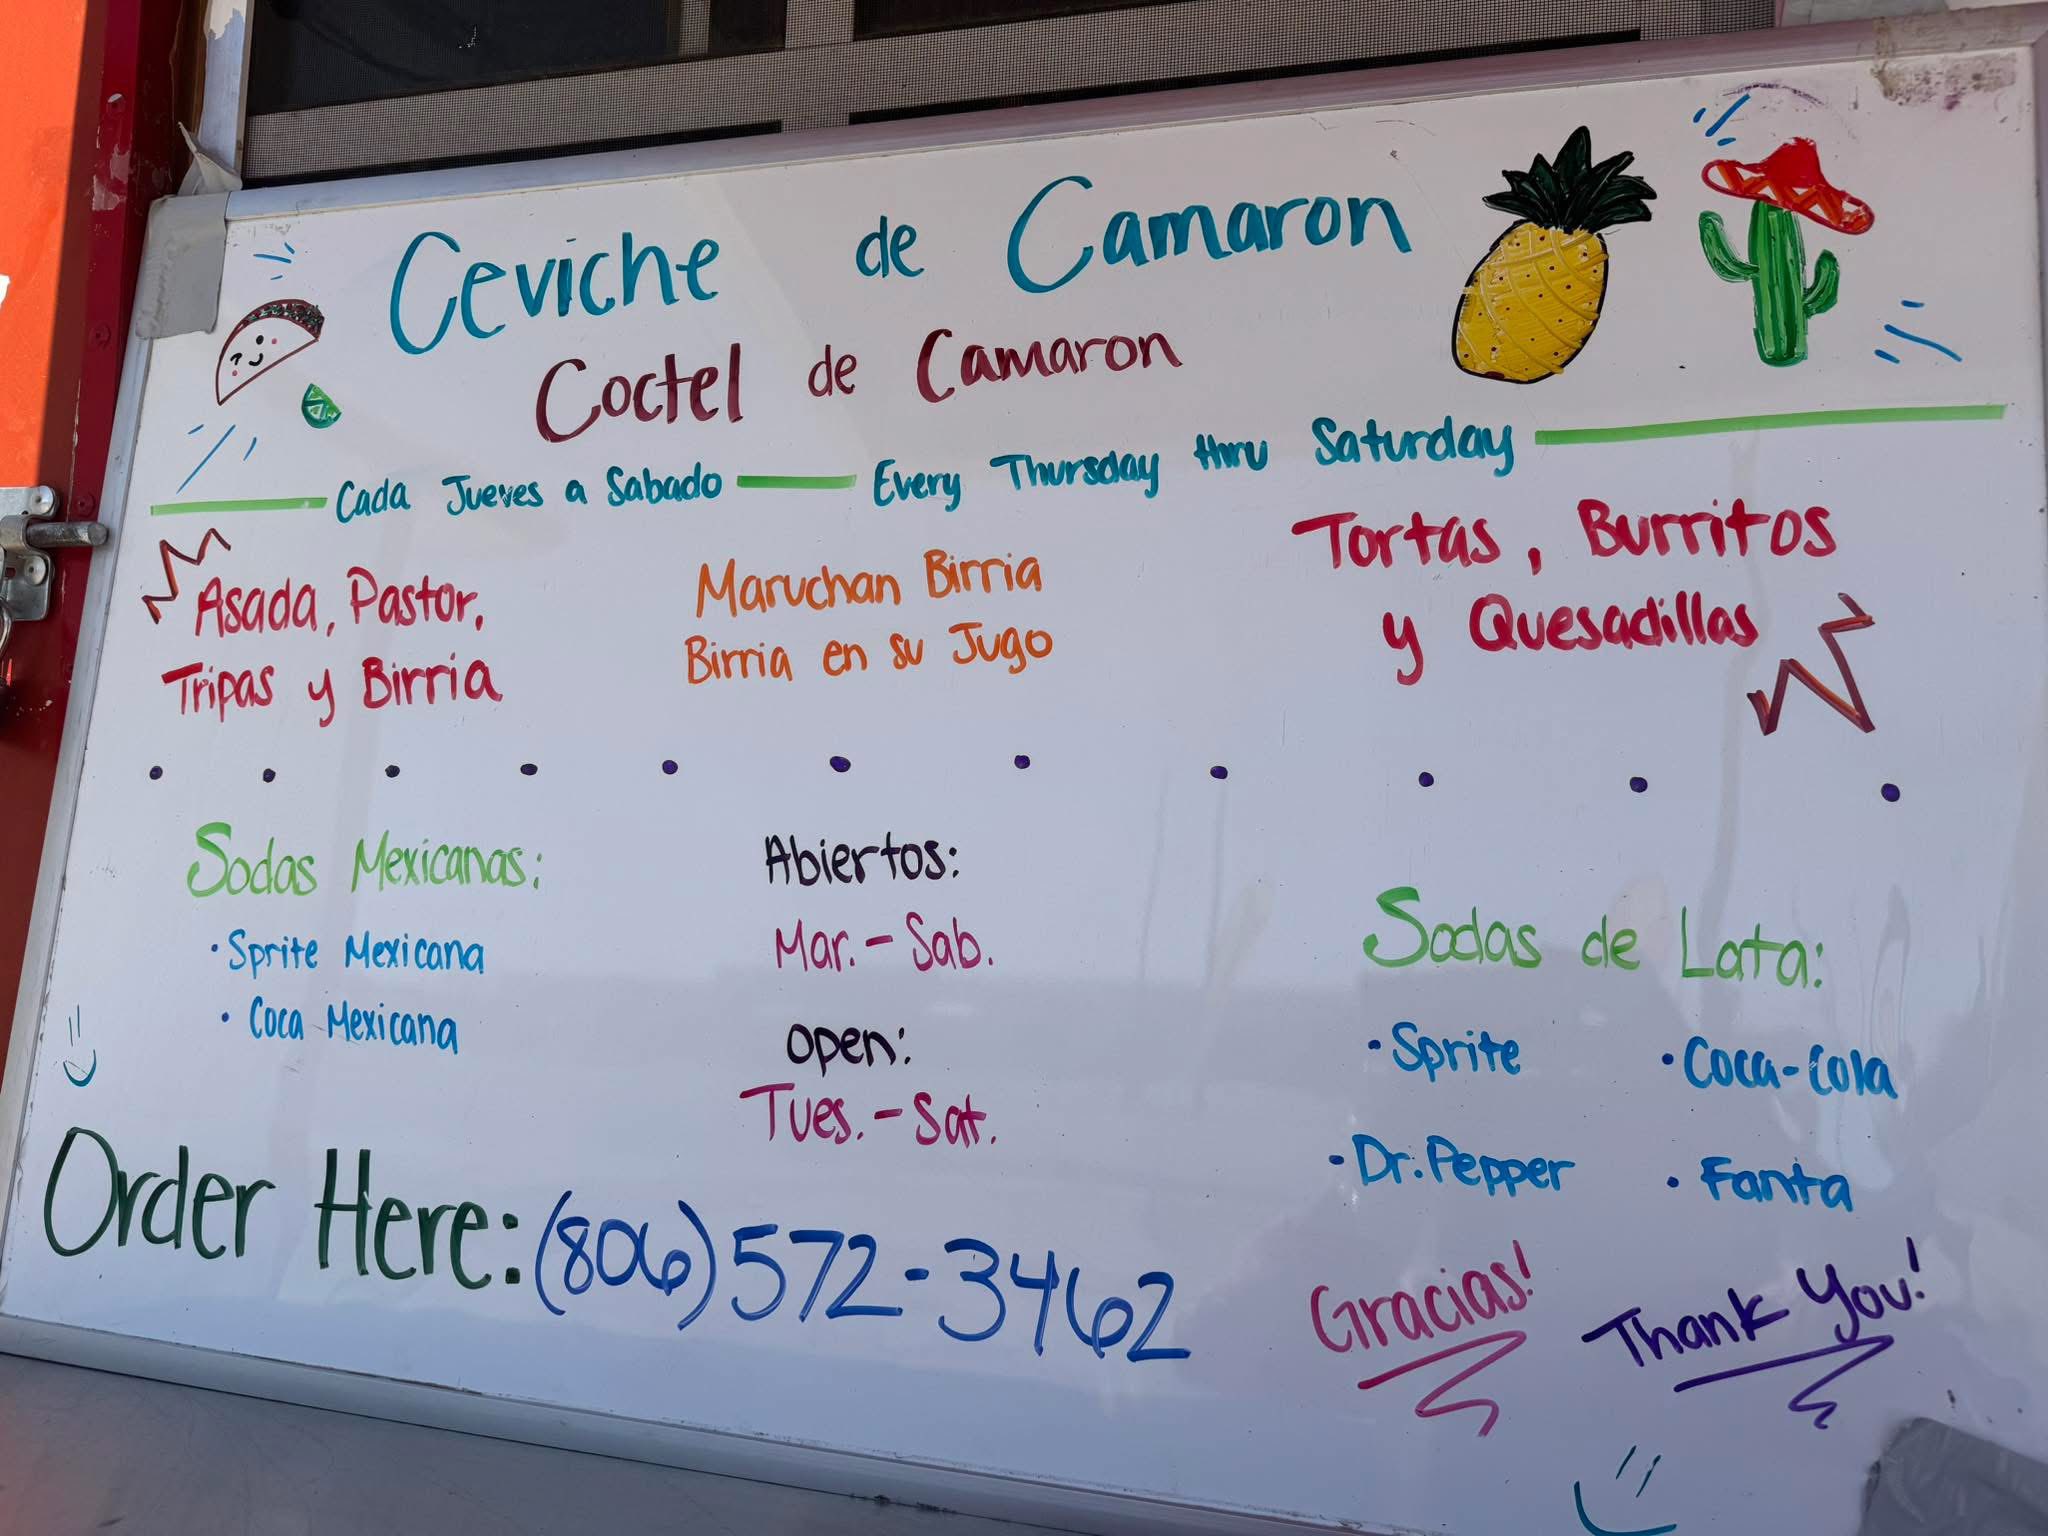 Ceviche de Camaron
Coctel de Camaron
Cada Jueves a Sabado Every Thursday thru Saturday
Asada, Pastor,
Tripas y Birria
Maruchan Birria
Birria en su Jugo
Tortas, Burritos
y Quesadillas
Sodas Mexicanas:
• Sprite Mexicana
• Coca Mexicana
Abiertos:
Mar. - Sab.
Open:
Tues. - Sat.
Sodas de Lata:
• Sprite • Coca-Cola
• Dr. Pepper • Fanta
Order Here: (806) 572-3462
Gracias! Thank You!